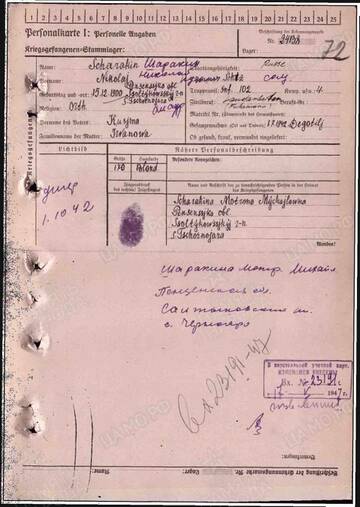 1 2 3 4 5 6 7 8 9 10 11 12 13 14 15 16 17 18 19 20 21 22 23 24 25
Personalkarte I: Personelle Angaben
Kriegsgefangenen-Stammlager:
Beschriftung der Erkennungsmarke
Nr.
Lager:
72
Name: Scharakin Шаракин
Vorname: Nikolaj Николай
Geburtstag und -ort: 15.12.1900 Pensenskja obl.
S. Tschornojara
Religion: Orth.
Vorname des Vaters: Kusjma
Familienname der Mutter: Iwanowa
Staatsangehörigkeit: Russe
Dienstgrad: Sold. сол.
Truppenteil: 102 Komp. usw.: 4.
Zivilberuf: Berufs-Gr.:
Matrikel Nr. (Stammrolle des Heimatstaates):
Gefangennahme (Ort und Datum):
Ob gesund, krank, verwundet eingeliefert:
Kriegsgefangener
Lichtbild
Nähere Personalbeschreibung
Größe
Haarfarbe
Besondere Kennzeichen:
170
blond
Fingerabdruck
des rechten Zeigefingers
Name und Anschrift der zu benachrichtigenden Person in der Heimat
des Kriegsgefangenen
Scharakina Motrona Mychajlowna
Pensenskja obl.
S. Tschornojara
Wenden!
умер
1.10.42
Шаракина Мотр. Михайл.
Пензенская обл.
Салтыковский р.
с. Чернояр
Вх 23191-47
В персональный учетный карт.
ИЗМЕНЕНИЯ ВНЕСЕНЫ
Вх. № 23191
1947 г.
Bemerkungen:
Beschriftung der Erkennungsmarke Nr.
Lager:
Name:
ЦАМО РФ